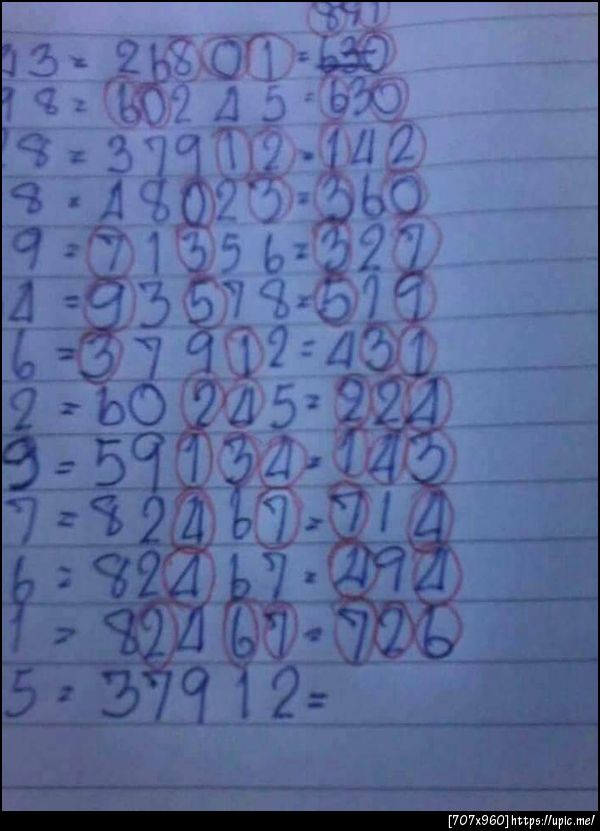 891
33 = 26801 = 630
98 = 60245 = 630
8 = 37912 = 142
8 = 48023 = 360
9 = 71356 = 327
4 = 93578 = 519
6 = 37912 = 431
2 = 60245 = 224
9 = 59134 = 143
7 = 82467 = 714
6 = 82467 = 494
1 = 82467 = 726
5 = 37912 =
[707x960] https://upic.me/